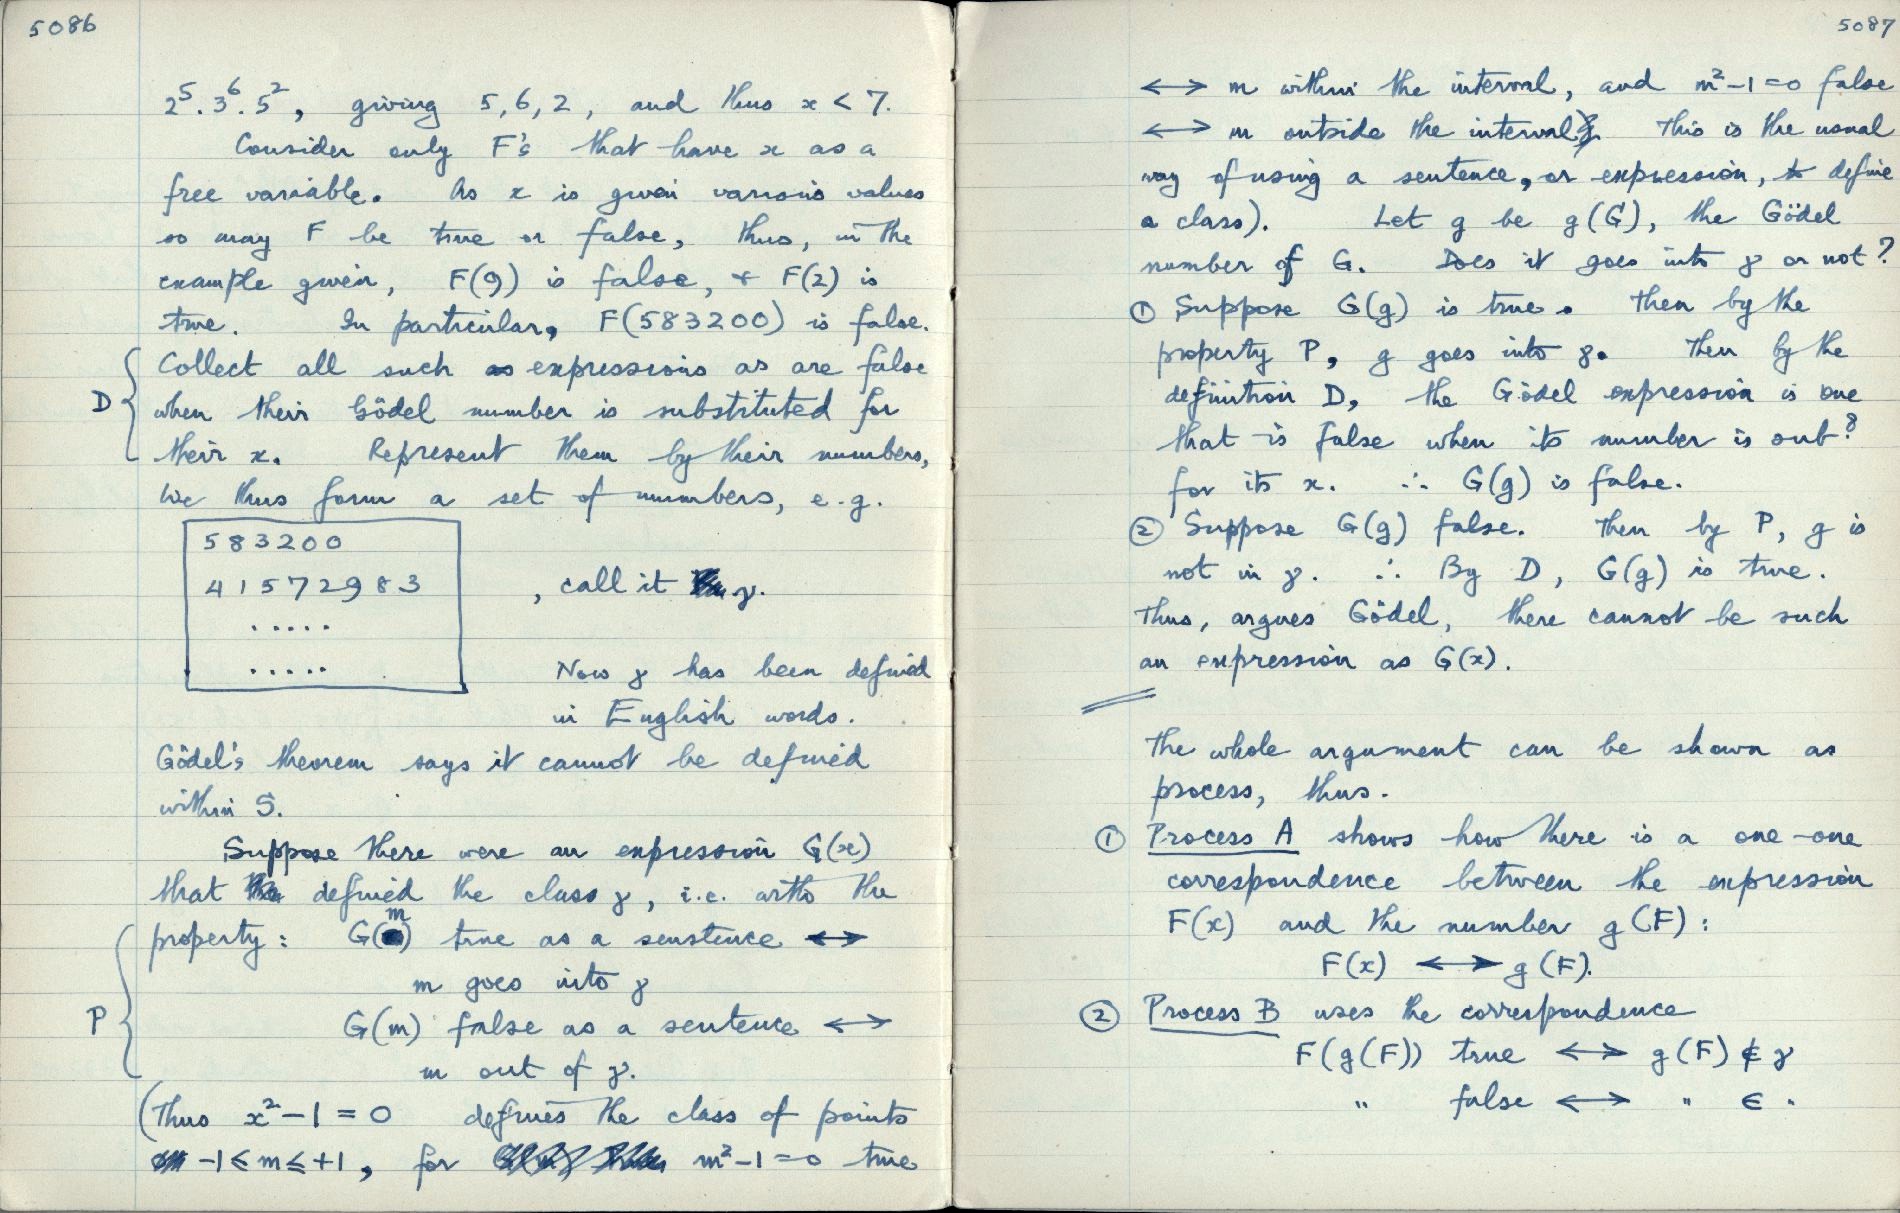 5086
2⁵.3⁶.5², giving 5,6,2, and thus x < 7.
Consider only F's that have x as a
free variable. As x is given various values
so may F be true or false, thus, in the
example given, F(9) is false, & F(2) is
true. In particular, F(583200) is false.
Collect all such expressions as are false
D { when their Gödel number is substituted for
their x. Represent them by their numbers,
We thus form a set of numbers, e.g.
583200
41572983 , call it γ.
.....
..... Now γ has been defined
in English words.
Gödel's theorem says it cannot be defined
within S.
Suppose there were an expression G(x)
that defined the class γ, i.e. with the
property: G(m) true as a sentence ⟷
m goes into γ
P { G(m) false as a sentence ⟷
m out of γ.
(Thus x²-1=0 defines the class of points
-1≤m≤+1, for m²-1=0 true
5087
⟷ m within the interval, and m²-1=0 false
⟷ m outside the interval. This is the usual
way of using a sentence, or expression, to define
a class). Let g be g(G), the Gödel
number of G. Does it goes into γ or not?
① Suppose G(g) is true. Then by the
property P, g goes into γ. Then by the
definition D, the Gödel expression is one
that is false when its number is sub?
for its x. ∴ G(g) is false.
② Suppose G(g) false. Then by P, g is
not in γ. ∴ By D, G(g) is true.
Thus, argues Gödel, there cannot be such
an expression as G(x).
The whole argument can be shown as
process, thus.
① Process A shows how there is a one-one
correspondence between the expression
F(x) and the number g(F):
F(x) ⟷ g(F).
② Process B uses the correspondence
F(g(F)) true ⟷ g(F) ∉ γ
" false ⟷ " ∈ "